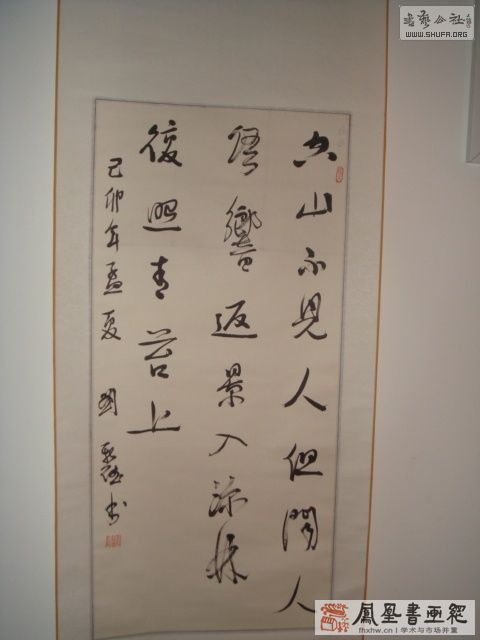 空山不見人但聞人
語響返景入深林
復照青苔上
己卯年孟夏 國 书
書藝公社
WWW.SHUFA.ORG
鳳凰書画網
fhxhw.cn | 学术与市场并重